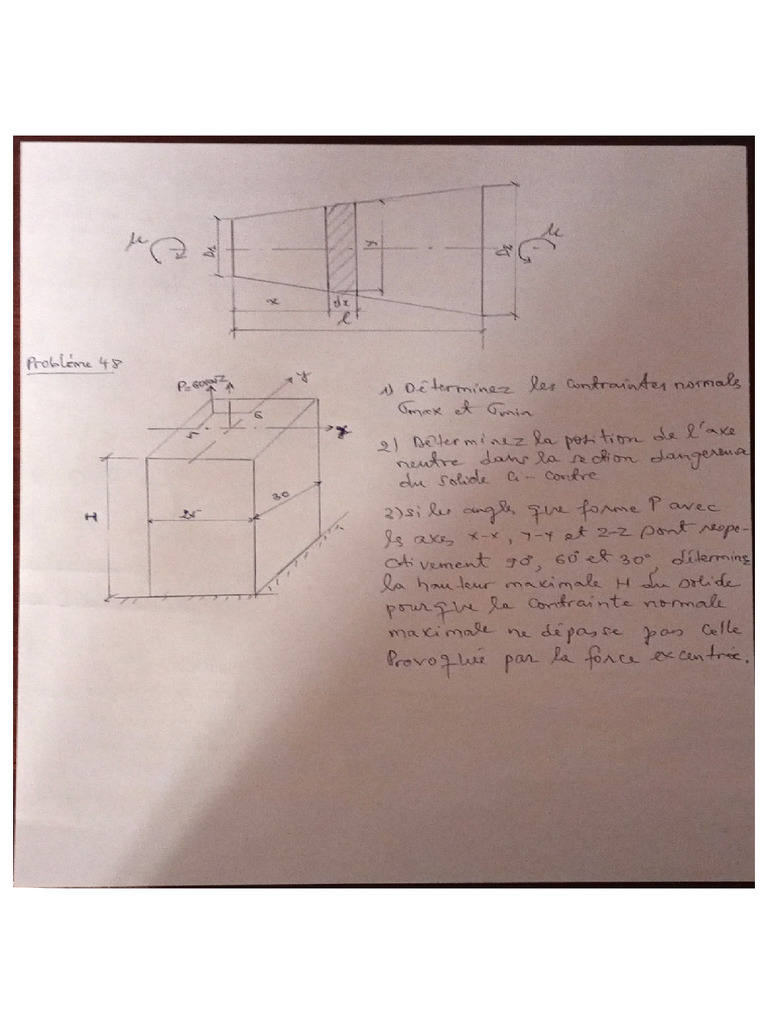 D1
x
dx
y
D2
l
Problème 48
Z
y
6
5
x
H
25
30
1) Déterminez les contraintes normals
σmax et σmin
2) Déterminez la position de l'axe
neutre dans la section dangereuse
du solide ci-contre
3) si les angles que forme P avec
les axes x-x, y-y et z-z sont respe-
ctivement 90°, 60° et 30°, détermine
la hauteur maximale H du solide
pour que la contrainte normale
maximale ne dépasse pas celle
Provoquée par la force excentrée.